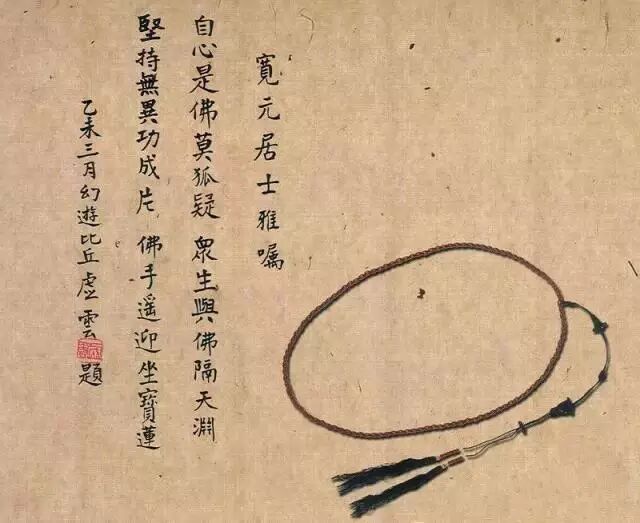 寬元居士雅嘱
自心是佛莫狐疑 眾生與佛隔天淵
堅持無異功成片 佛手遥迎坐寶蓮
乙未三月幻遊比丘虛雲題